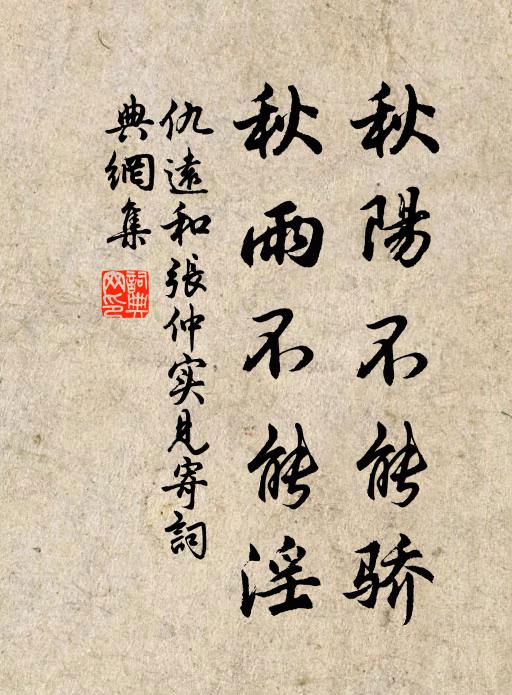 秋陽不能骄
秋雨不能淫
仇遠和張仲实見寄詞
典網集
詞典网印